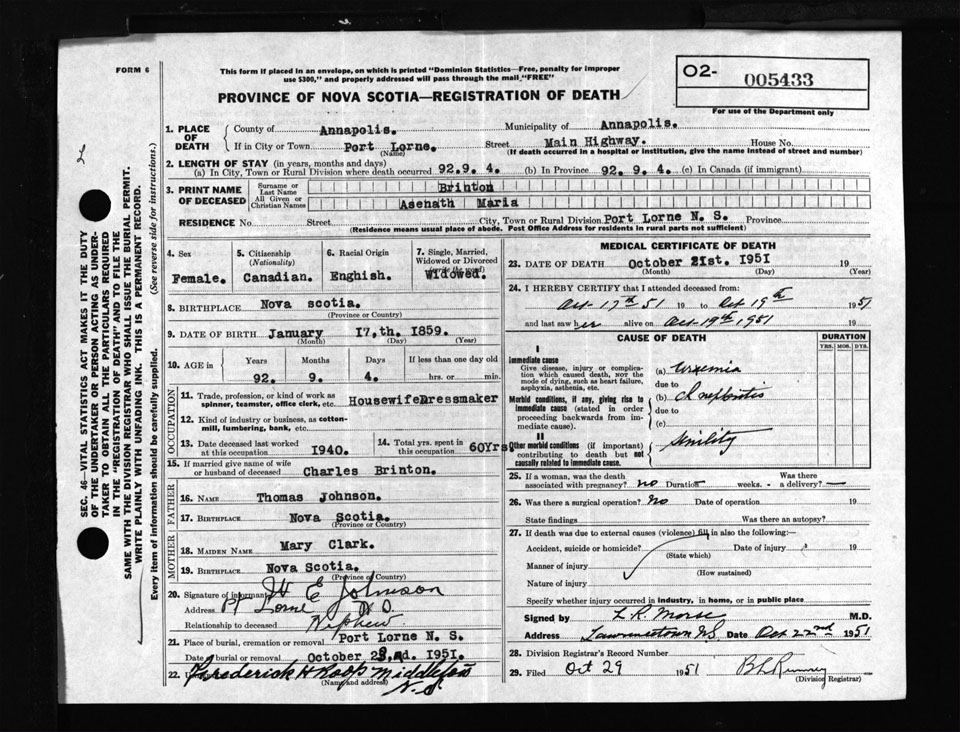 FORM 6
This form if placed in an envelope, on which is printed "Dominion Statistics—Free, penalty for improper
use $300," and properly addressed will pass through the mail "FREE"
PROVINCE OF NOVA SCOTIA—REGISTRATION OF DEATH
02- 005433
For use of the Department only
SEC. 46—VITAL STATISTICS ACT MAKES IT THE DUTY
OF THE UNDERTAKER OR PERSON ACTING AS UNDER-
TAKER TO OBTAIN ALL THE PARTICULARS REQUIRED
IN THE "REGISTRATION OF DEATH" AND TO FILE THE
SAME WITH THE DIVISION REGISTRAR WHO SHALL ISSUE THE BURIAL PERMIT.
WRITE PLAINLY WITH UNFADING INK. THIS IS A PERMANENT RECORD.
Every item of information should be carefully supplied. (See reverse side for instructions.)
1. PLACE OF DEATH
County of Annapolis. Municipality of Annapolis.
If in City or Town Port Lorne. Street Main Highway. House No.
(Name) (If death occurred in a hospital or institution, give the name instead of street and number)
2. LENGTH OF STAY (in years, months and days)
(a) In City, Town or Rural Division where death occurred 92.9. 4. (b) In Province 92. 9. 4. (c) In Canada (if immigrant)
3. PRINT NAME OF DECEASED
Surname or Last Name Brinton
All Given or Christian Names Asenath Maria
RESIDENCE No. Street City, Town or Rural Division Port Lorne N. S. Province
(Residence means usual place of abode. Post Office Address for residents in rural parts not sufficient)
4. Sex
Female.
5. Citizenship (Nationality)
Canadian.
6. Racial Origin
Enghish.
7. Single, Married, Widowed or Divorced (write the word)
Widowed.
8. BIRTHPLACE Nova scotia.
(Province or Country)
9. DATE OF BIRTH January 17,th. 1859.
(Month) (Day) (Year)
10. AGE in Years Months Days If less than one day old
92. 9. 4. hrs. or min.
OCCUPATION
11. Trade, profession, or kind of work as spinner, teamster, office clerk, etc. HousewifeDressmaker
12. Kind of industry or business, as cotton-mill, lumbering, bank, etc.
13. Date deceased last worked at this occupation 1940.
14. Total yrs. spent in this occupation 60Yrs.
15. If married give name of wife or husband of deceased Charles Brinton.
FATHER
16. NAME Thomas Johnson.
17. BIRTHPLACE Nova Scotia.
(Province or Country)
MOTHER
18. MAIDEN NAME Mary Clark.
19. BIRTHPLACE Nova Scotia.
(Province of Country)
20. Signature of informant H E Johnson
Address Pt Lorne N.S.
Relationship to deceased Nephew
21. Place of burial, cremation or removal Port Lorne N. S.
Date of burial or removal October 23,d. 1951.
22. Frederick H Roop Middleton
N.S.
(Name and address)
MEDICAL CERTIFICATE OF DEATH
23. DATE OF DEATH October 21st. 1951 19
(Month) (Day) (Year)
24. I HEREBY CERTIFY that I attended deceased from:
Oct- 17th 51 19 to Oct 19th 1951
and last saw her alive on Oct-19th 1951 19
CAUSE OF DEATH DURATION
YRS. MOS. DYS.
I
Immediate cause
Give disease, injury or complication which caused death, NOT the mode of dying, such as heart failure, asphyxia, asthenia, etc.
(a) Uraemia
due to
Morbid conditions, if any, giving rise to immediate cause (stated in order proceeding backwards from immediate cause).
(b) Ch nephritis
due to
(c)
II
Other morbid conditions (if important) contributing to death but not causally related to immediate cause.
Senility
25. If a woman, was the death associated with pregnancy? no Duration weeks. - Was there a delivery? —
26. Was there a surgical operation? No Date of operation 19
State findings Was there an autopsy?
27. If death was due to external causes (violence) fill in also the following:—
Accident, suicide or homicide? Date of injury 19
(State which)
Manner of injury
(How sustained)
Nature of injury
Specify whether injury occurred in industry, in home, or in public place
Signed by L. R. Morse M.D.
Address Lawrencetown N.S. Date Oct 22nd 1951
28. Division Registrar's Record Number
29. Filed Oct 29 1951
(Division Registrar)